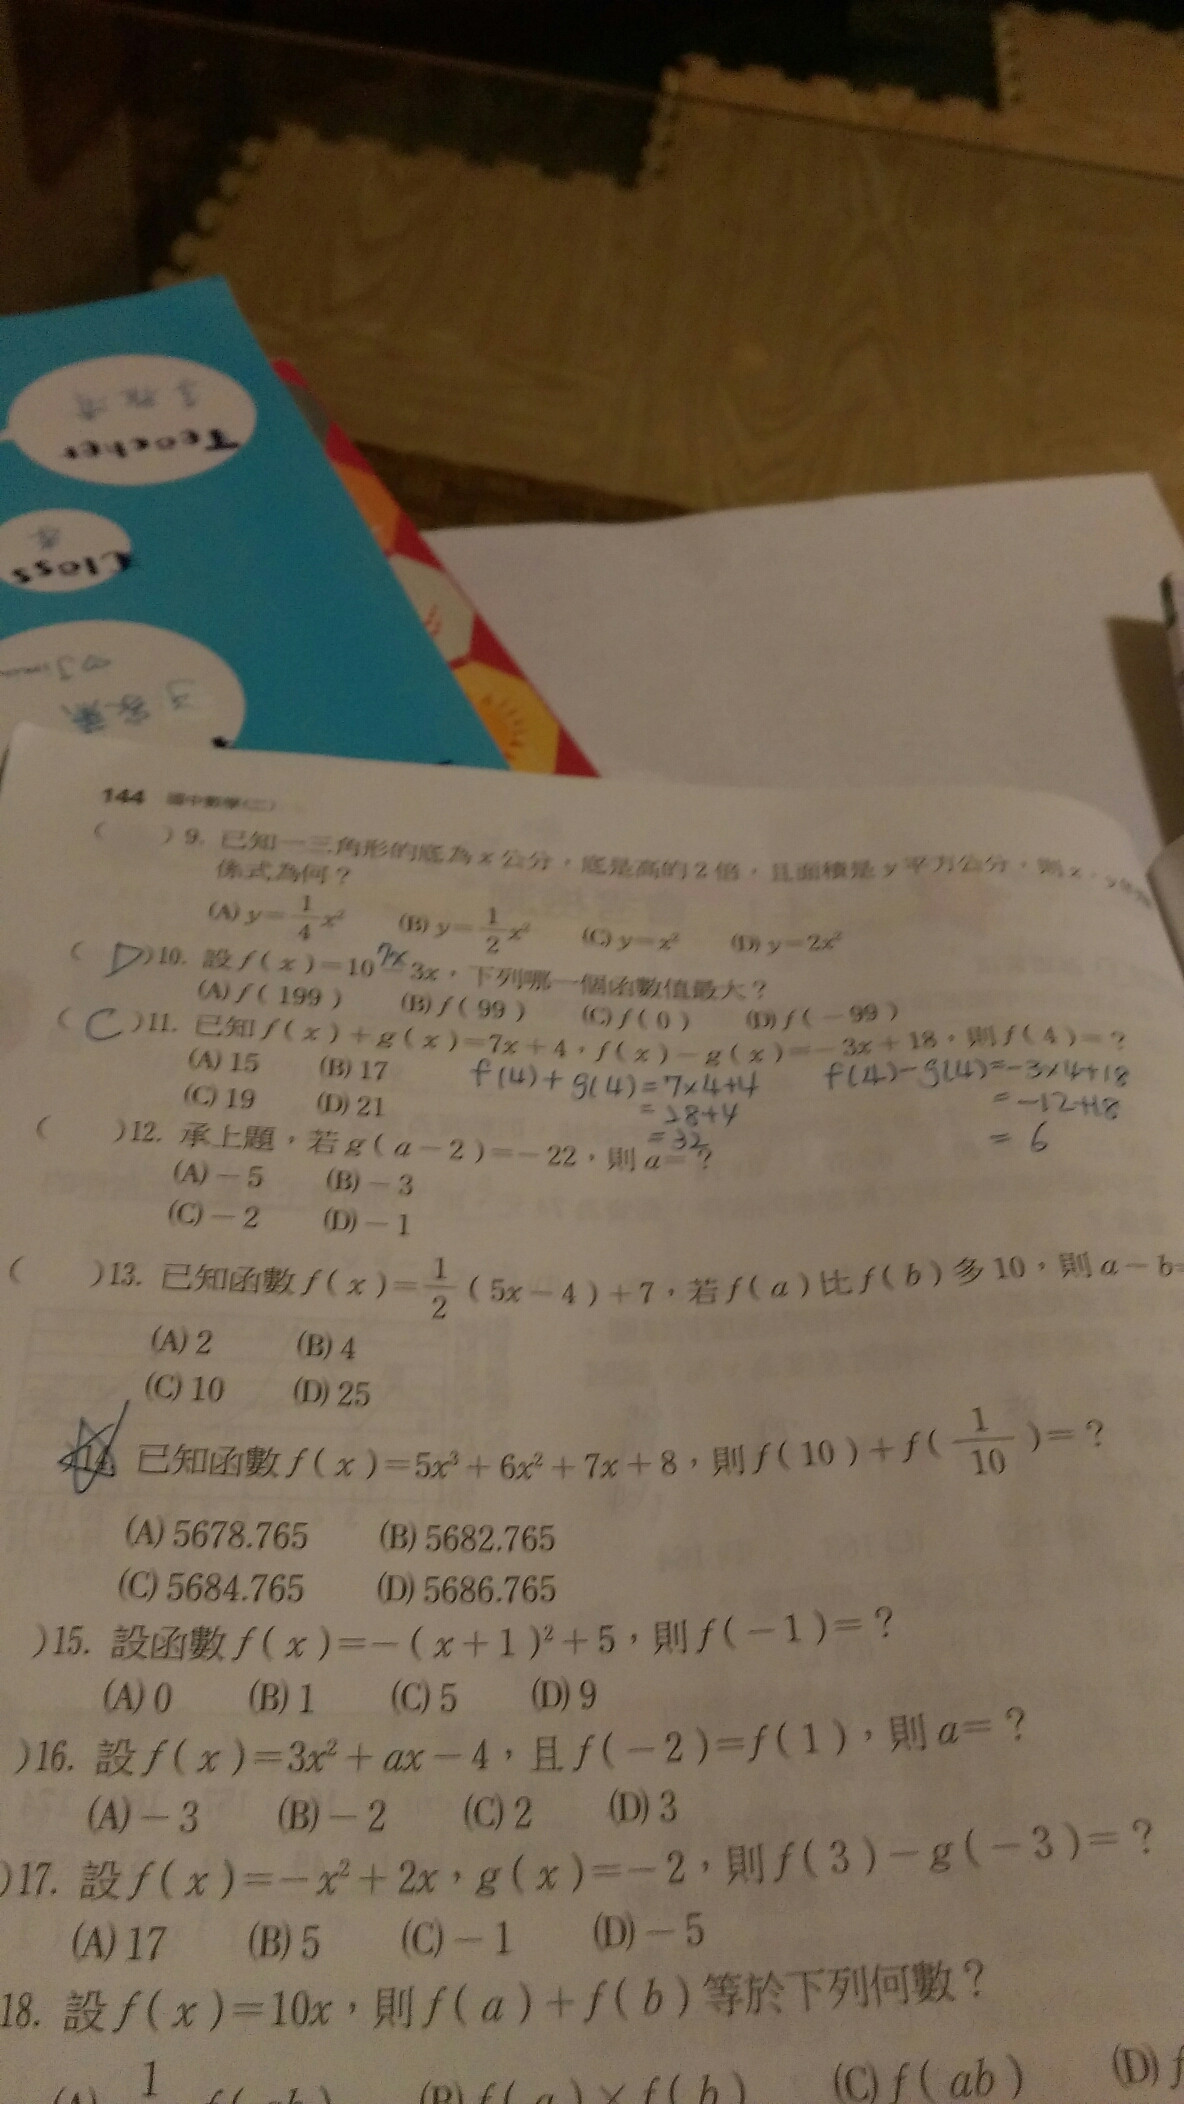 Teacher
Class
144 國中數學(二)
( )9. 已知一三角形的底為x公分，底是高的2倍，且面積是y平方公分，則x、y的
係式為何？
(A) y=1/4 x² (B) y=1/2 x² (C) y=x² (D) y=2x²
( D )10. 設f(x)=10-3x，下列哪一個函數值最大？
(A) f(199) (B) f(99) (C) f(0) (D) f(-99)
( C )11. 已知f(x)+g(x)=7x+4，f(x)-g(x)=-3x+18，則f(4)=？
(A) 15 (B) 17
(C) 19 (D) 21
f(4)+g(4)=7x4+4
=28+4
=32
f(4)-g(4)=-3x4+18
=-12+18
=6
( )12. 承上題，若g(a-2)=-22，則a=？
(A) -5 (B) -3
(C) -2 (D) -1
( )13. 已知函數f(x)=1/2(5x-4)+7，若f(a)比f(b)多10，則a-b=
(A) 2 (B) 4
(C) 10 (D) 25
14. 已知函數f(x)=5x³+6x²+7x+8，則f(10)+f(1/10)=？
(A) 5678.765 (B) 5682.765
(C) 5684.765 (D) 5686.765
)15. 設函數f(x)=-(x+1)²+5，則f(-1)=？
(A) 0 (B) 1 (C) 5 (D) 9
)16. 設f(x)=3x²+ax-4，且f(-2)=f(1)，則a=？
(A) -3 (B) -2 (C) 2 (D) 3
)17. 設f(x)=-x²+2x，g(x)=-2，則f(3)-g(-3)=？
(A) 17 (B) 5 (C) -1 (D) -5
18. 設f(x)=10x，則f(a)+f(b)等於下列何數？
(A) 1 f(ab) (B) f(a)×f(b) (C) f(ab) (D) f